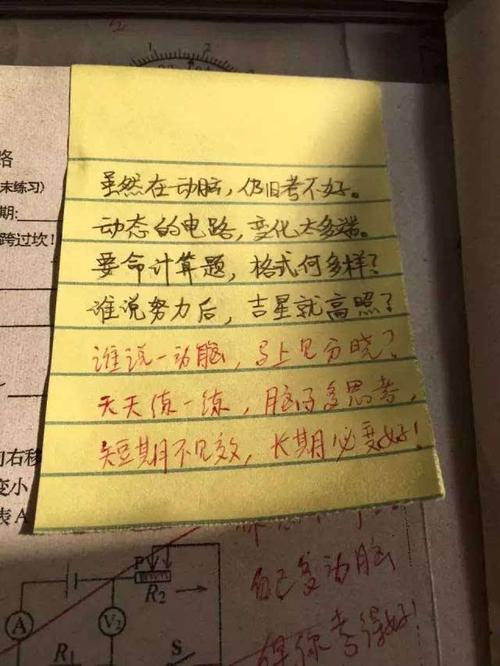 2
路
末练习)
期:
跨过坎!
虽然在动脑，仍旧考不好。
动态的电路，变化太多端。
要命计算题，格式何多样？
谁说努力后，吉星就高照？
谁说一动脑，马上见分晓？
天天练一练，脑子多思考，
短期不见效，长期必变好！
向右移
变小
表A
P
R2
A
V2
R1
S
自己多动脑
考得好!